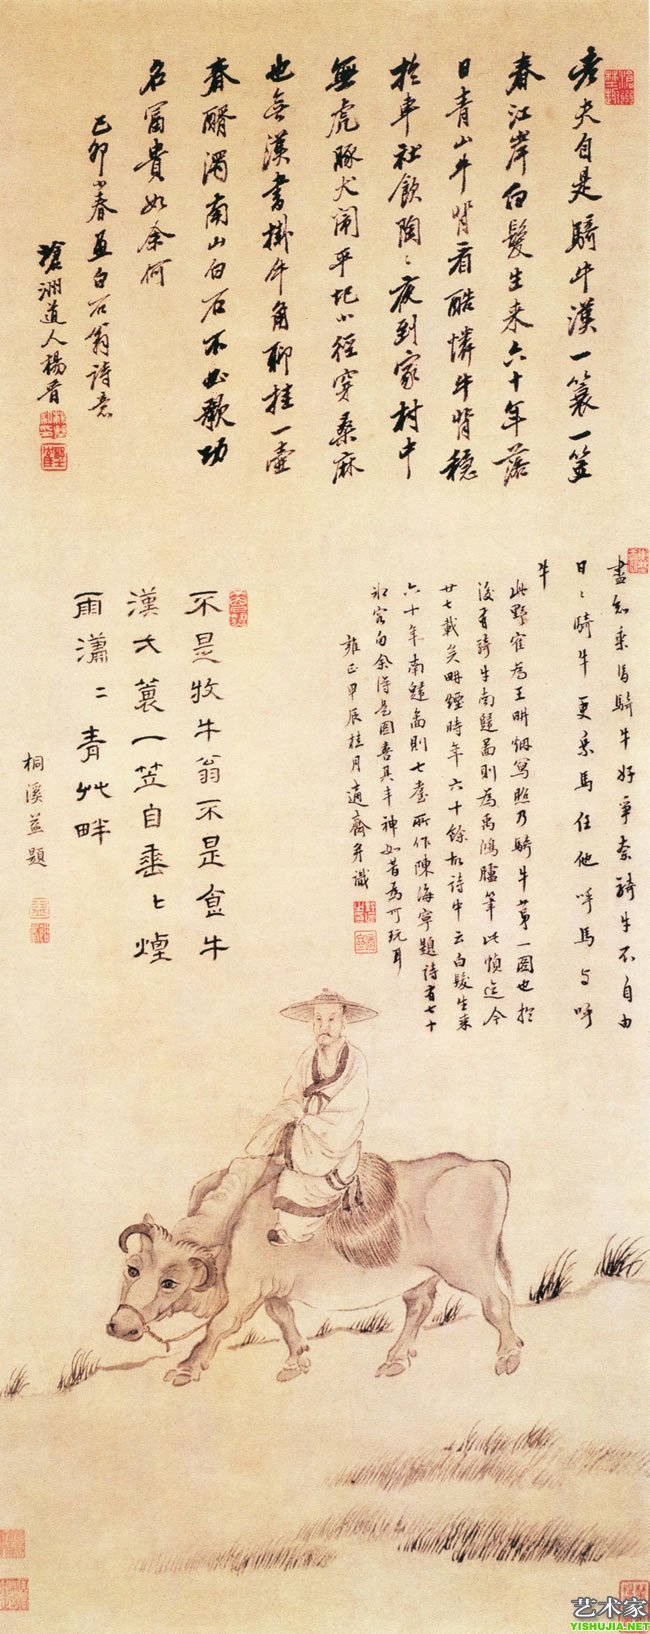 老夫自是騎牛漢一簑一笠
春江岸白髮生来六十年落
日青山牛背看酷憐牛背穏
於車社飲陶〻夜到家村中
無虎豚犬鬧平圯小徑穿桑麻
也無漢書掛牛角聊挂一壺
春醑濁南山白石不必歌功
名富貴如余何
己卯小春画白石翁詩意
滄洲道人楊晋
盡知乗馬騎牛好爭奈騎牛不自由
日〻騎牛更乗馬任他呼馬与呼
牛
此野崔為王畊烟寫照乃騎牛第一圖也於
後有騎牛南歸圖則為禹鴻臚筆此幀迄今
廿七載矣畊煙時年六十餘故詩中云白髮生来
六十年南歸圖則七臺所作陳海寧題詩有七十
氷容句余得是圖喜其丰神如昔為可玩耳
雍正甲辰桂月適齋并識
不是牧牛翁不是食牛
漢弌蓑一笠自垂〻煙
雨瀟〻青艸畔
桐溪益題
艺术家
YISHUJIA.NET